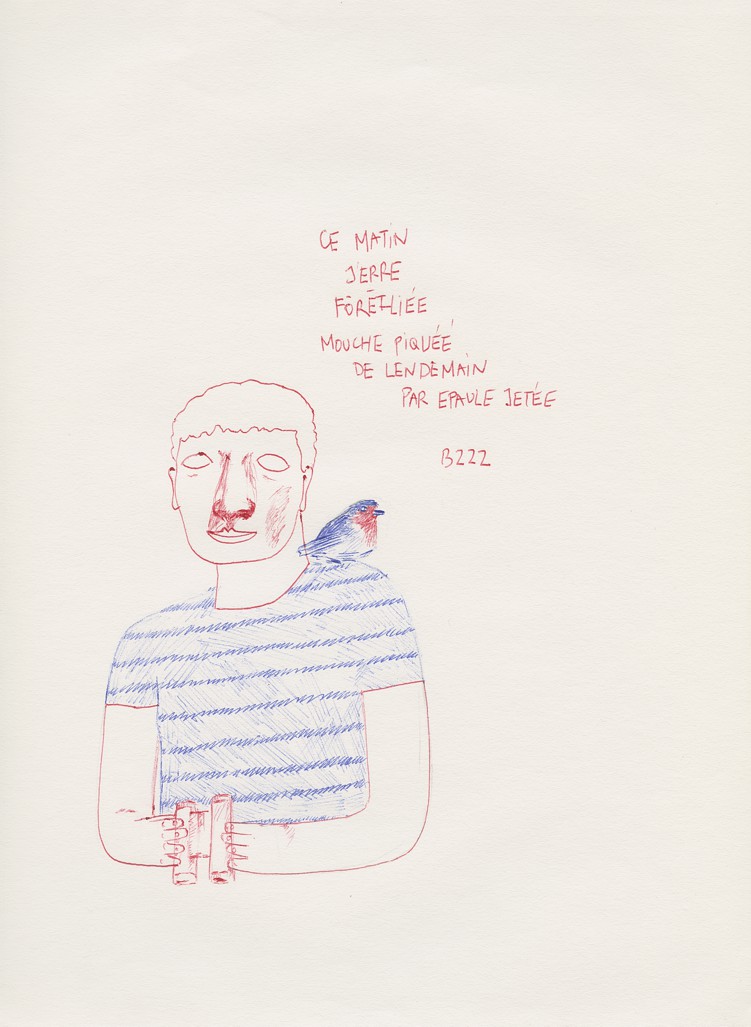 CE MATIN
J'ERRE
FÔRÊT-LIÉE
MOUCHE PIQUÉE
DE LENDEMAIN
PAR EPAULE JETÉE
BZZZ